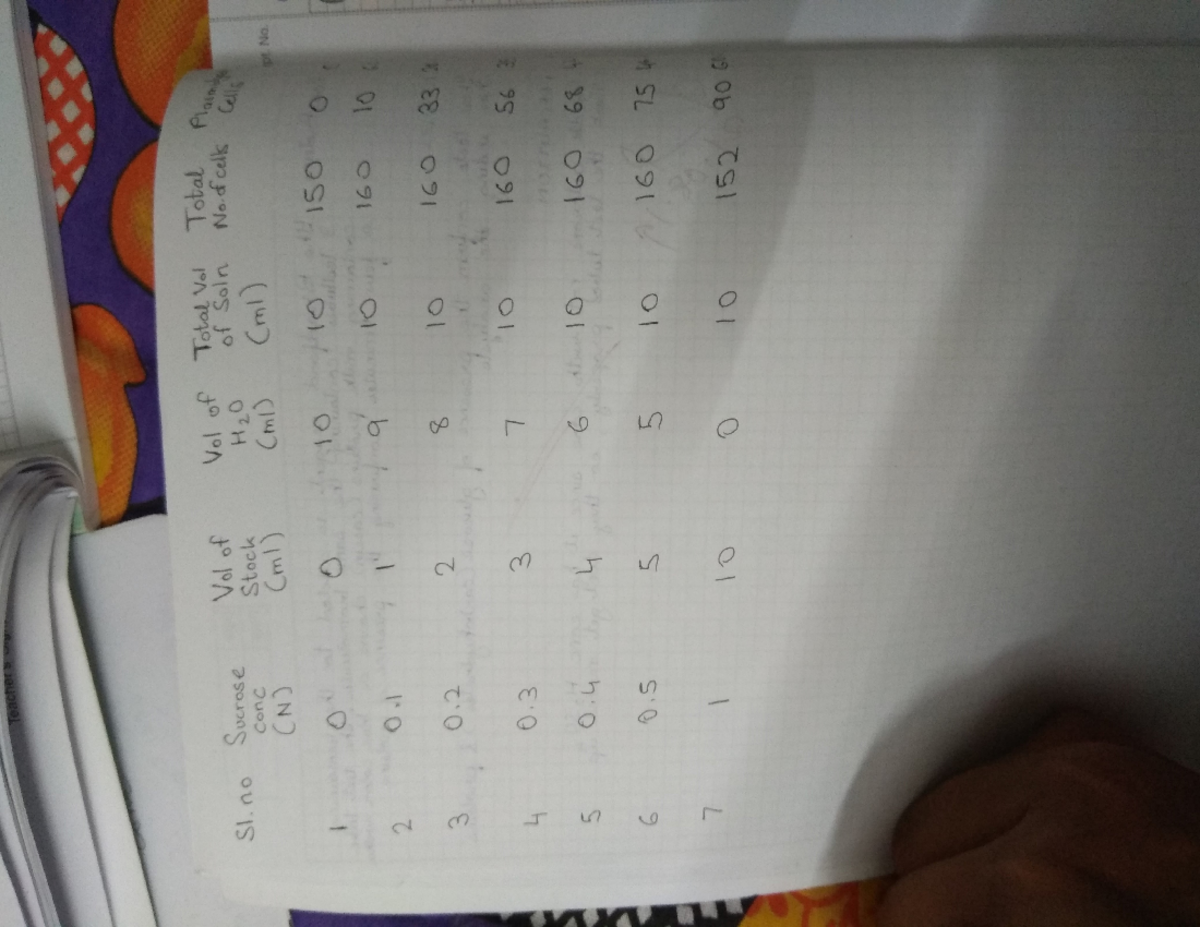 Sl.no Sucrose conc (N) Vol of Stock (ml) Vol of H2O (ml) Total Vol of Soln (ml) Total No.of cells Cells
1 0 0 10 10 150 0
2 0.1 1 9 10 160 10
3 0.2 2 8 10 160 33
4 0.3 3 7 10 160 56
5 0.4 4 6 10 160 68
6 0.5 5 5 10 160 75
7 1 10 0 10 152 90